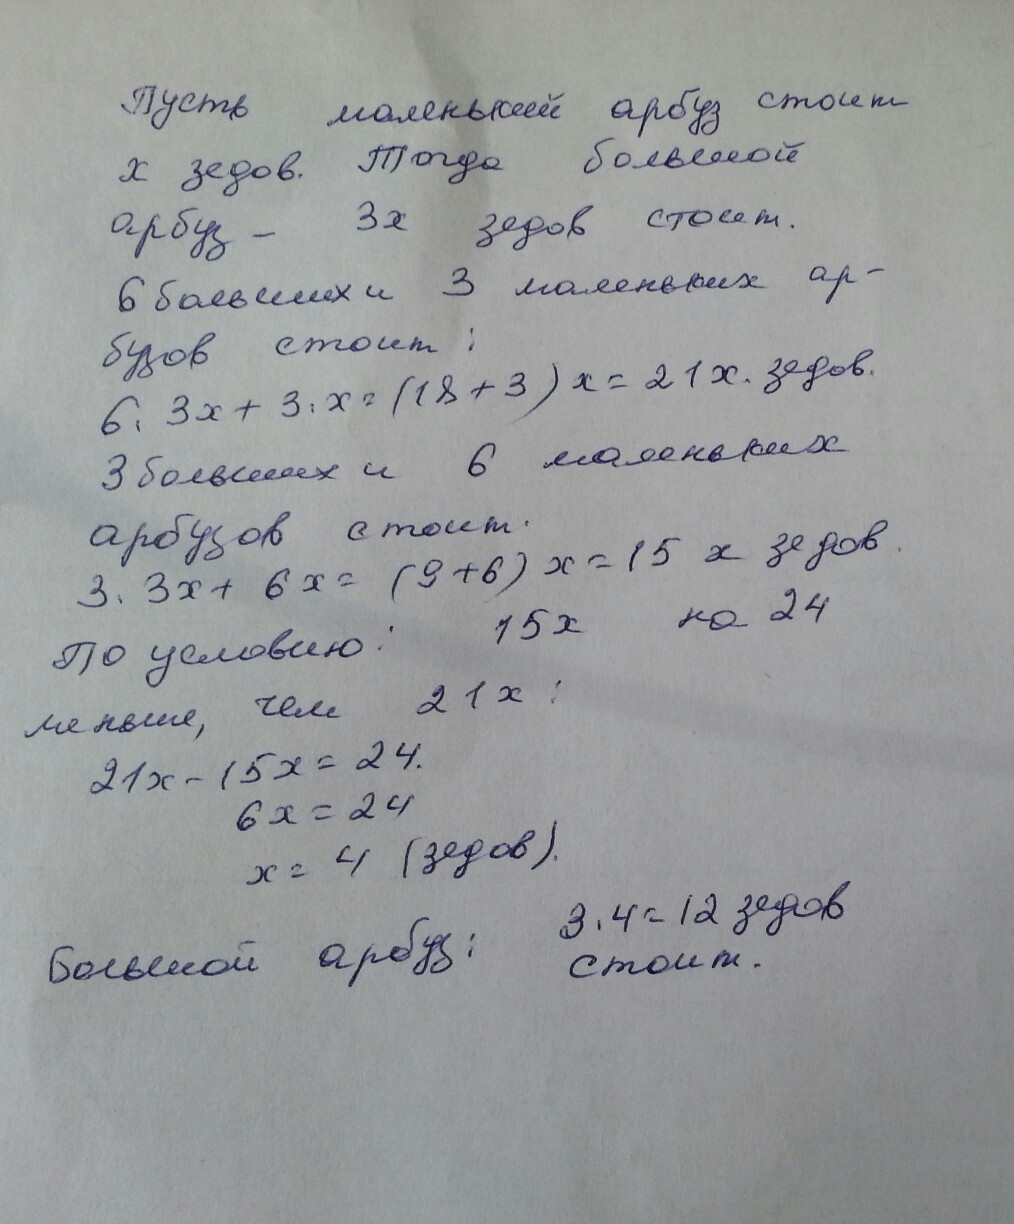 Пусть маленький арбуз стоит
х зедов. Тогда большой
арбуз – 3х зедов стоит.
6 больших и 3 маленьких ар-
бузов стоит:
6·3х + 3·х = (18+3)х = 21х. зедов.
3 больших и 6 маленьких
арбузов стоит.
3·3х + 6х = (9+6)х = 15 х зедов.
По условию: 15х на 24
меньше, чем 21х:
21х - 15х = 24.
6х = 24
х = 4 (зедов).
Большой арбуз: 3·4 = 12 зедов
стоит.